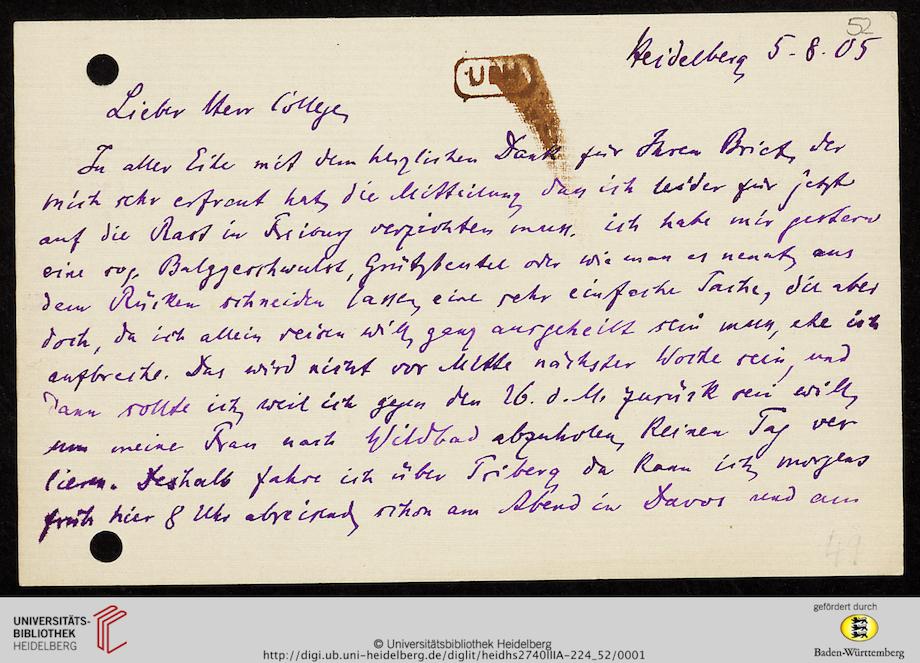 52
Heidelberg 5.8.05
UBH
Lieber Herr College,
In aller Eile mit dem herzlichen Dank für Ihren Brief, der
mich sehr erfreut hat, die Mitteilung dass ich leider für jetzt
auf die Rast in Freiburg verzichten muss. ich habe mir gestern
eine sog. Balggeschwulst, Grützbeutel oder wie man es nennt, aus
dem Rücken schneiden lassen, eine sehr einfache Sache, die aber
doch, da ich allein reisen will, ganz ausgeheilt sein muss, ehe ich
aufbreche. Das wird nicht vor Mitte nächster Woche sein, und
dann sollte ich, weil ich gegen den 26. d. M. zurück sein will,
um meine Frau nach Wildbad abzuholen, keinen Tag ver
lieren. Deshalb fahre ich über Triberg, da kann ich, morgens
früh hier 8 Uhr abreisend, schon am Abend in Davos und am
49
UNIVERSITÄTS-
BIBLIOTHEK
HEIDELBERG
© Universitätsbibliothek Heidelberg
http://digi.ub.uni-heidelberg.de/diglit/heidhs2740IIIA-224_52/0001
gefördert durch
Baden-Württemberg